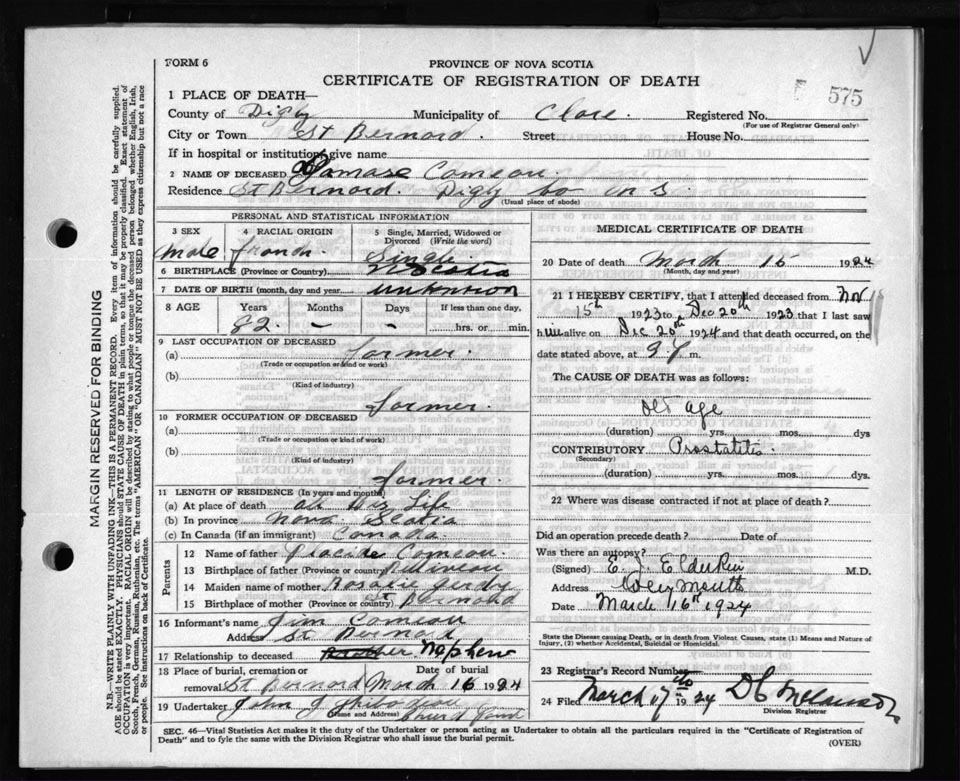 FORM 6
PROVINCE OF NOVA SCOTIA
CERTIFICATE OF REGISTRATION OF DEATH
575
1 PLACE OF DEATH—
County of Digby Municipality of Clare. Registered No.
(For use of Registrar General only)
City or Town St Bernard. Street House No.
If in hospital or institution, give name
2 NAME OF DECEASED Damase Comeau.
Residence St Bernard. Digby Co N S.
(Usual place of abode)
PERSONAL AND STATISTICAL INFORMATION
3 SEX 4 RACIAL ORIGIN 5 Single, Married, Widowed or Divorced (Write the word)
Male french Single
6 BIRTHPLACE (Province or Country) N Scotia
7 DATE OF BIRTH (month, day and year)
8 AGE Years Months Days If less than one day,
82 – – hrs. or min.
9 LAST OCCUPATION OF DECEASED
(a) farmer.
(Trade or occupation or kind or work)
(b)
(Kind of industry)
farmer.
10 FORMER OCCUPATION OF DECEASED
(a)
(Trade or occupation or kind of work)
(b)
(Kind of Industry)
farmer
11 LENGTH OF RESIDENCE (In years and months)
(a) At place of death All His Life
(b) In province Nova Scotia
(c) In Canada (if an immigrant) Canada.
Parents
12 Name of father Placide Comeau.
13 Birthplace of father (Province or country)
14 Maiden name of mother Rosalie
15 Birthplace of mother (Province or country) St Bernard
16 Informant's name Jim Comeau
Address St Bernard
17 Relationship to deceased Nephew
18 Place of burial, cremation or removal Date of burial
St Bernard March 16 1924
19 Undertaker John
(Name and Address)
MEDICAL CERTIFICATE OF DEATH
20 Date of death March 15 1924
(Month, day and year)
21 I HEREBY CERTIFY, that I attended deceased from Nov
15th 1923 to Dec 20th 1923 that I last saw
him alive on Dec 20th 1924 and that death occurred, on the
date stated above, at 9 m.
The CAUSE OF DEATH was as follows:
Old Age
(duration) yrs. mos. dys
CONTRIBUTORY Prostatitis.
(Secondary)
(duration) yrs. mos. dys.
22 Where was disease contracted if not at place of death?
Did an operation precede death? Date of
Was there an autopsy?
(Signed) E. J. Elderkin M.D.
Address Weymouth
Date March 16th 1924
State the Disease causing Death, or in death from Violent Causes, state (1) Means and Nature of Injury, (2) whether Accidental, Suicidal or Homicidal.
23 Registrar's Record Number
24 Filed March 17 1924 D C
Division Registrar
SEC. 46—Vital Statistics Act makes it the duty of the Undertaker or person acting as Undertaker to obtain all the particulars required in the "Certificate of Registration of Death" and to fyle the same with the Division Registrar who shall issue the burial permit.
(OVER)
MARGIN RESERVED FOR BINDING
N.B.—WRITE PLAINLY WITH UNFADING INK—THIS IS A PERMANENT RECORD. Every item of information should be carefully supplied.
AGE should be stated EXACTLY. PHYSICIANS should STATE CAUSE OF DEATH in plain terms, so that it may be properly classified. Exact statement of
OCCUPATION is very important. RACIAL ORIGIN will be described by stating to what people or tongue the deceased person belonged whether English, Irish,
Scotch, French, German, Russian, Ruthenian, etc. The terms "AMERICAN" OR "CANADIAN" MUST NOT BE USED as they express citizenship but not a race
or people. See instructions on back of Certificate.